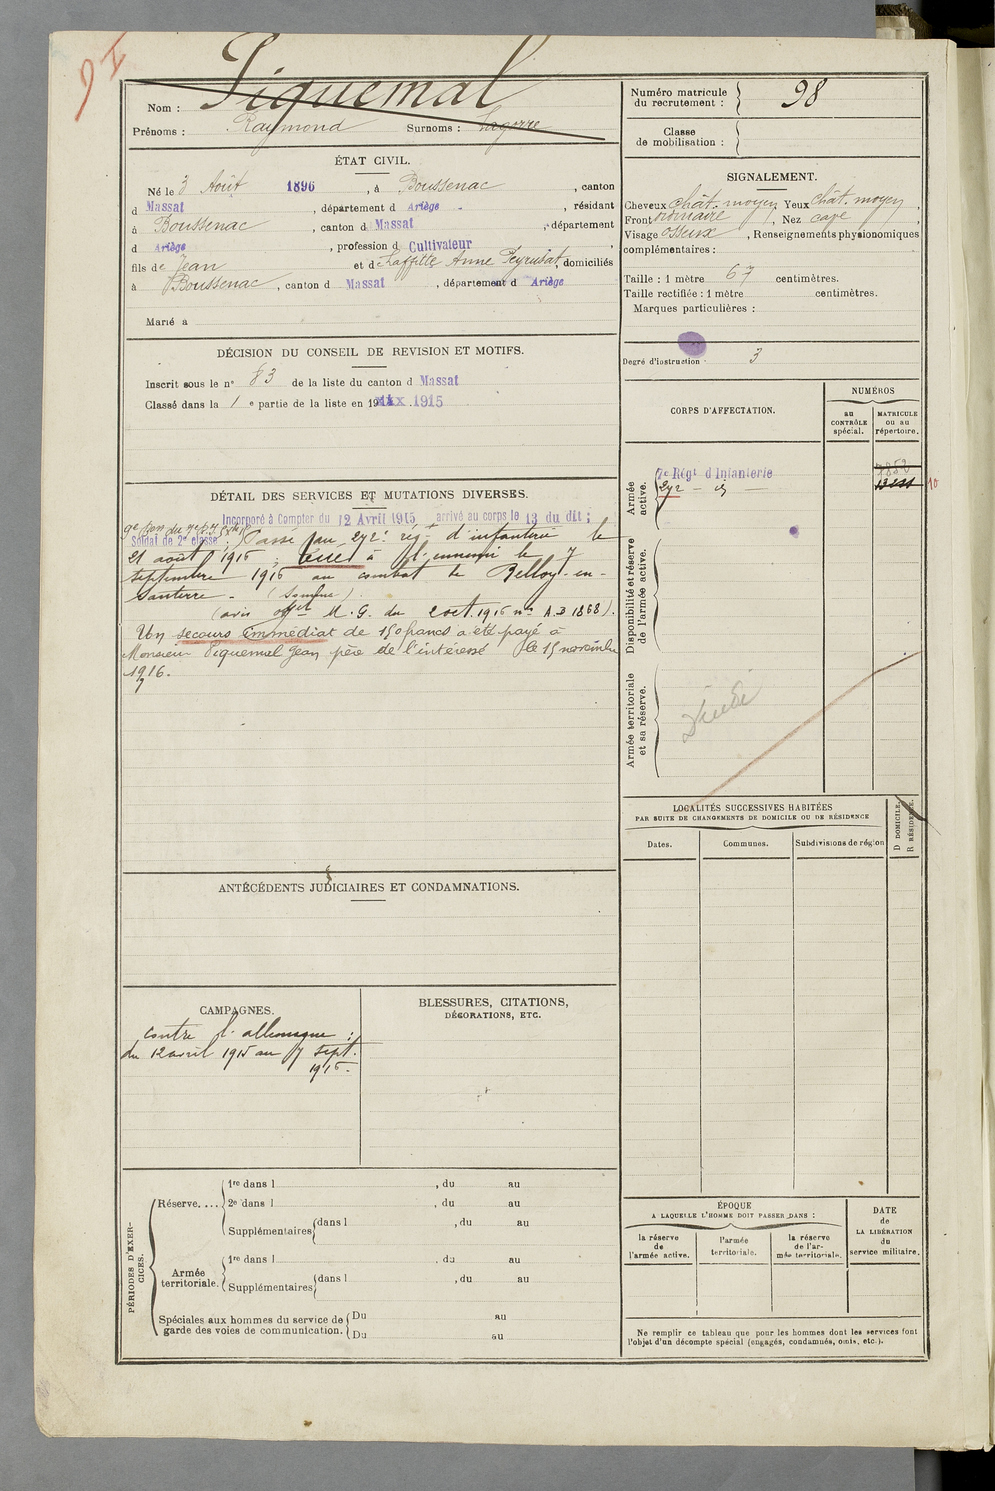 Nom : Piquemal
Prénoms : Raymond Surnoms : Lagorre
ÉTAT CIVIL.
Né le 3 Août 1896, à Boussenac, canton
d Massat, département d Ariège, résidant
à Boussenac, canton d Massat, département
d Ariège, profession d Cultivateur
fils de Jean et de Laffitte Anne Peyrusat, domiciliés
à Boussenac, canton d Massat, département d Ariège
Marié à
DÉCISION DU CONSEIL DE REVISION ET MOTIFS.
Inscrit sous le n° 83 de la liste du canton d Massat
Classé dans la 1 e partie de la liste en 19 1915
DÉTAIL DES SERVICES ET MUTATIONS DIVERSES.
Incorporé à Compter du 12 Avril 1915 arrivé au corps le 13 du dit ;
Soldat de 2e classe ; Passé au 272e rég-t d'infanterie le
21 août 1916 ; tué à l'ennemi le 7
septembre 1916 au combat de Belloy-en-
Santerre - (Somme)
(avis offel M. G. du 2 oct. 1916 no A.D 1868).
Un secours immédiat de 150 francs a été payé à
Monsieur Piquemal Jean père de l'intéressé le 15 novembre
1916.
ANTÉCÉDENTS JUDICIAIRES ET CONDAMNATIONS.
CAMPAGNES.
contre l'allemagne :
du 12 avril 1915 au 7 sept.
1916.
BLESSURES, CITATIONS,
DÉCORATIONS, ETC.
PÉRIODES D'EXERCICES.
Réserve....
1re dans l , du au
2e dans l , du au
Supplémentaires dans l , du au
Armée
territoriale.
1re dans l , du au
Supplémentaires dans l , du au
Spéciales aux hommes du service de
garde des voies de communication.
Du au
Du au
Numéro matricule
du recrutement : 98
Classe
de mobilisation :
SIGNALEMENT.
Cheveux chât. moyen Yeux chât. moyen,
Front ordinaire, Nez cave,
Visage osseux, Renseignements physionomiques
complémentaires :
Taille : 1 mètre 67 centimètres.
Taille rectifiée : 1 mètre centimètres.
Marques particulières :
Degré d'instruction 3
CORPS D'AFFECTATION.
NUMÉROS
au
CONTRÔLE
spécial.
MATRICULE
ou au
répertoire.
Armée
active.
7e Régt d'Infanterie
272 - id -
7852
Disponibilité et réserve
de l'armée active.
Armée territoriale
et sa réserve.
Décédé
LOCALITÉS SUCCESSIVES HABITÉES
PAR SUITE DE CHANGEMENTS DE DOMICILE OU DE RÉSIDENCE
D DOMICILE.
R RÉSIDENCE.
Dates. Communes. Subdivisions de région
ÉPOQUE
A LAQUELLE L'HOMME DOIT PASSER DANS :
la réserve
de
l'armée active.
l'armée
territoriale.
la réserve
de l'ar-
mée territoriale.
DATE
de
LA LIBÉRATION
du
service militaire.
Ne remplir ce tableau que pour les hommes dont les services font
l'objet d'un décompte spécial (engagés, condamnés, omis, etc.).